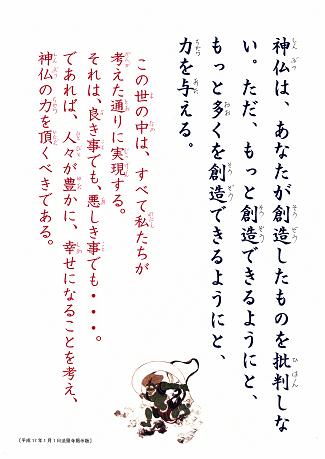 神仏は、あなたが創造したものを批判しな
い。ただ、もっと創造できるようにと、
もっと多くを創造できるようにと、
力を与える。
この世の中は、すべて私たちが
考えた通りに実現する。
それは、良き事でも、悪しき事でも・・・。
であれば、人々が豊かに、幸せになることを考え、
神仏の力を頂くべきである。